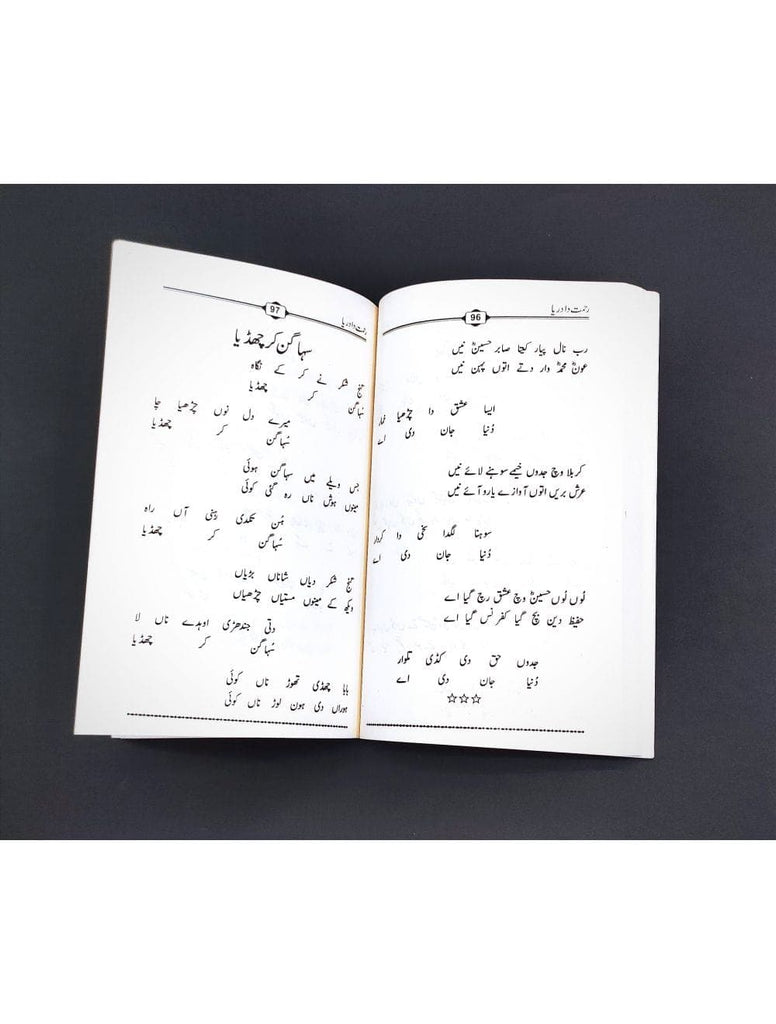 رحمت دا دریا
96
رب نال پیار کیتا صابر حسینؓ نیں
عونؓ محمدؓ وار دتے اتوں بہن نیں
ایسا عشق دا چڑھیا خمار
دُنیا جان دی اے
کربلا وچ جدوں خیمے سوہنے لائے نیں
عرش بریں اتوں آوازے یارو آئے نیں
سوہنا لگدا سخی دا کردار
دُنیا جان دی اے
لُوں لُوں حسینؓ وچ عشق رچ گیا اے
حفیظ دین بچ گیا کفر نس گیا اے
جدوں حق دی کڈی تلوار
دُنیا جان دی اے
☆☆☆
رحمت دا دریا
97
سہاگن کر چھڈیا
گنج شکر نے کر کے نگاہ
سُہاگن کر چھڈیا
میرے دل نوں چڑھیا چا
سُہاگن کر چھڈیا
جس ویلے میں سہاگن ہوئی
مینوں ہوش ناں رہ گئی کوئی
ہُن تکدی رہنی آں راہ
سُہاگن کر چھڈیا
گنج شکر دیاں شاناں بڑیاں
ویکھ کے مینوں مستیاں چڑھیاں
دتی جندھڑی اوہدے ناں لا
سُہاگن کر چھڈیا
بابا چھڈی تھوڑ ناں کوئی
ہوراں دی ہون لوڑ ناں کوئی